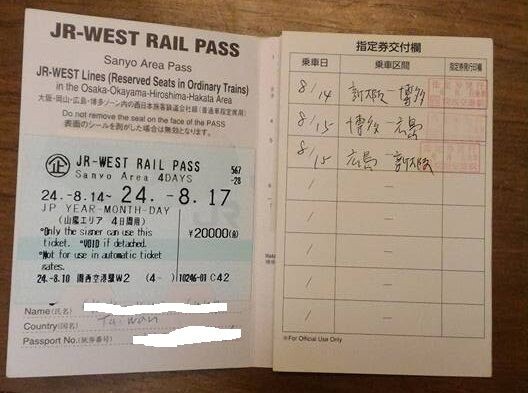 JR-WEST RAIL PASS
Sanyo Area Pass
JR-WEST Lines (Reserved Seats in Ordinary Trains)
in the Osaka-Okayama-Hiroshima-Hakata Area
大阪・岡山・広島・博多ゾーン内の西日本旅客鉄道会社線(普通車指定席用)
Do not remove the seal on the face of the PASS
表面のシールを剥がした場合は無効となります。
企 JR-WEST RAIL PASS 567
Sanyo Area 4DAYS -28
24.-8.14~ 24.-8.17
JP YEAR-MONTH-DAY
(山陽エリア 4日間用)
*Only the signer can use this ¥20000
ticket. *VOID if detached.
*Not for use in automatic ticket
gates.
24.-8.10 関西空港駅W2 (4-) 10246-01 C42
Name(氏名)
Country(国名) Taiwan
Passport No.(旅券番号)
指定券交付欄
乗車日 乗車区間 指定券発行日欄
8/14 新大阪 - 博多
8/15 博多 - 広島
8/15 広島 新大阪
/ -
/ -
/ -
/ -
/ -
※For Official Use Only